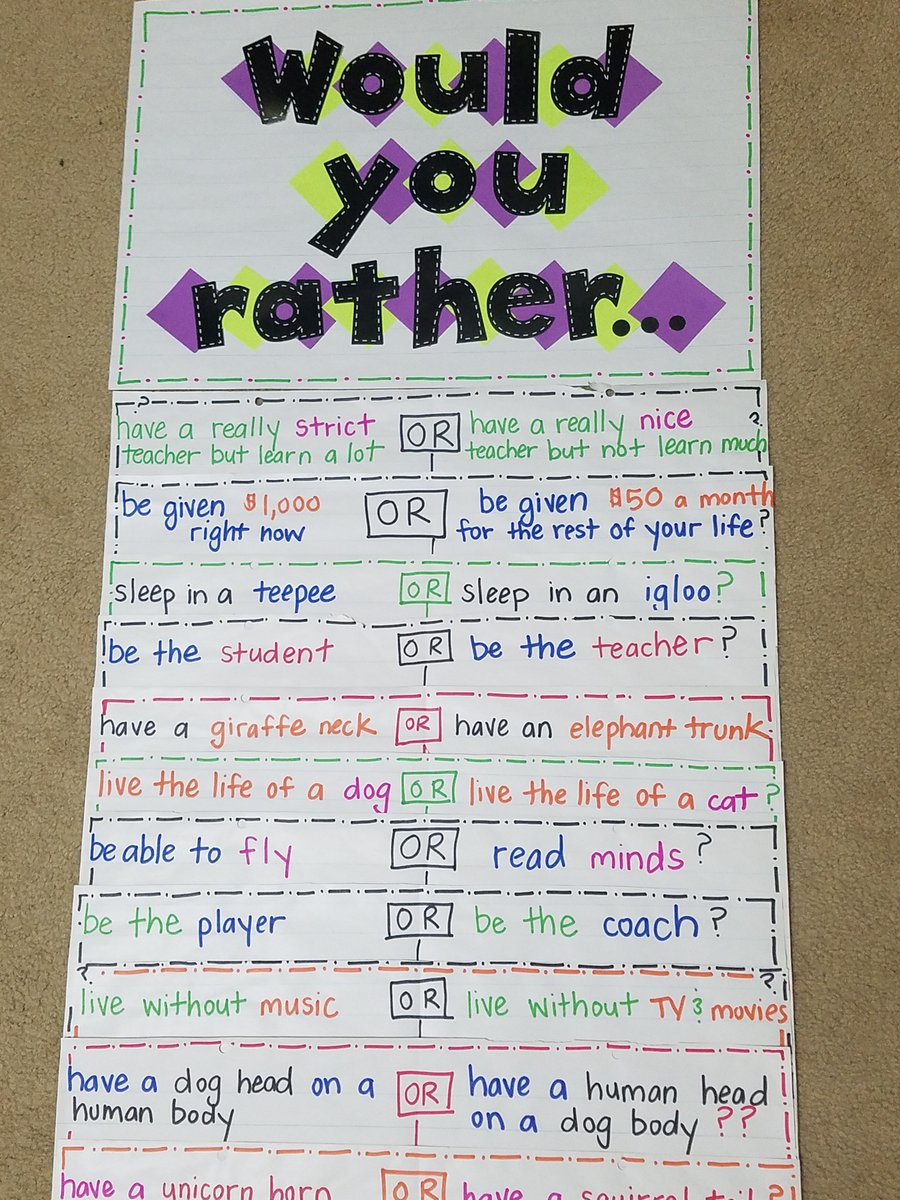 Would
you
rather...
have a really strict OR have a really nice ?
teacher but learn a lot teacher but not learn much
be given $1,000 OR be given $50 a month
right now for the rest of your life?
sleep in a teepee OR sleep in an igloo?
be the student OR be the teacher?
have a giraffe neck OR have an elephant trunk
live the life of a dog OR live the life of a cat?
be able to fly OR read minds?
be the player OR be the coach?
live without music OR live without TV & movies
have a dog head on a OR have a human head
human body on a dog body ??
have a unicorn horn OR have a squirrel tail?